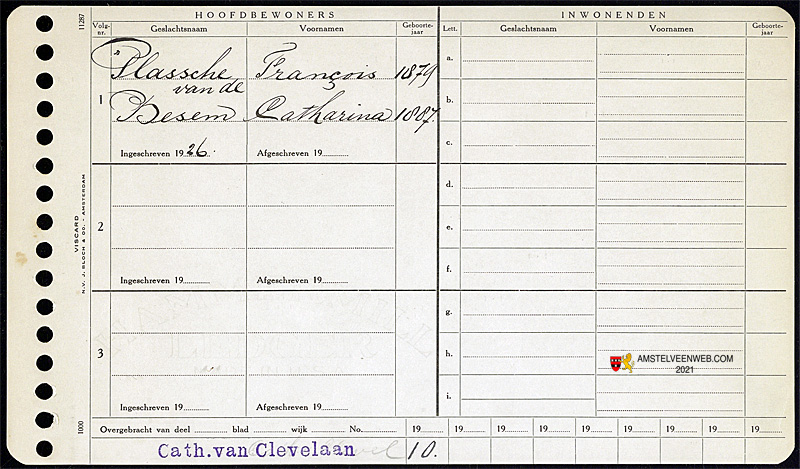 HOOFDBEWONERS
INWONENDEN
Volg-
nr.
Geslachtsnaam
Voornamen
Geboorte-
jaar
Lett.
Geslachtsnaam
Voornamen
Geboorte-
jaar
11287
1
Plassche François 1879
van de
Besem Catharina 1887
Ingeschreven 1926.
Afgeschreven 19
2
Ingeschreven 19
Afgeschreven 19
3
Ingeschreven 19
Afgeschreven 19
a.
b.
c.
d.
e.
f.
g.
h.
i.
VISCARD
N.V. J. BLOCH & CO. - AMSTERDAM
1000
AMSTELVEENWEB.COM
2021
Overgebracht van deel blad wijk No. 19 19 19 19 19 19 19 19 19 19
Cath.van Clevelaan 10.